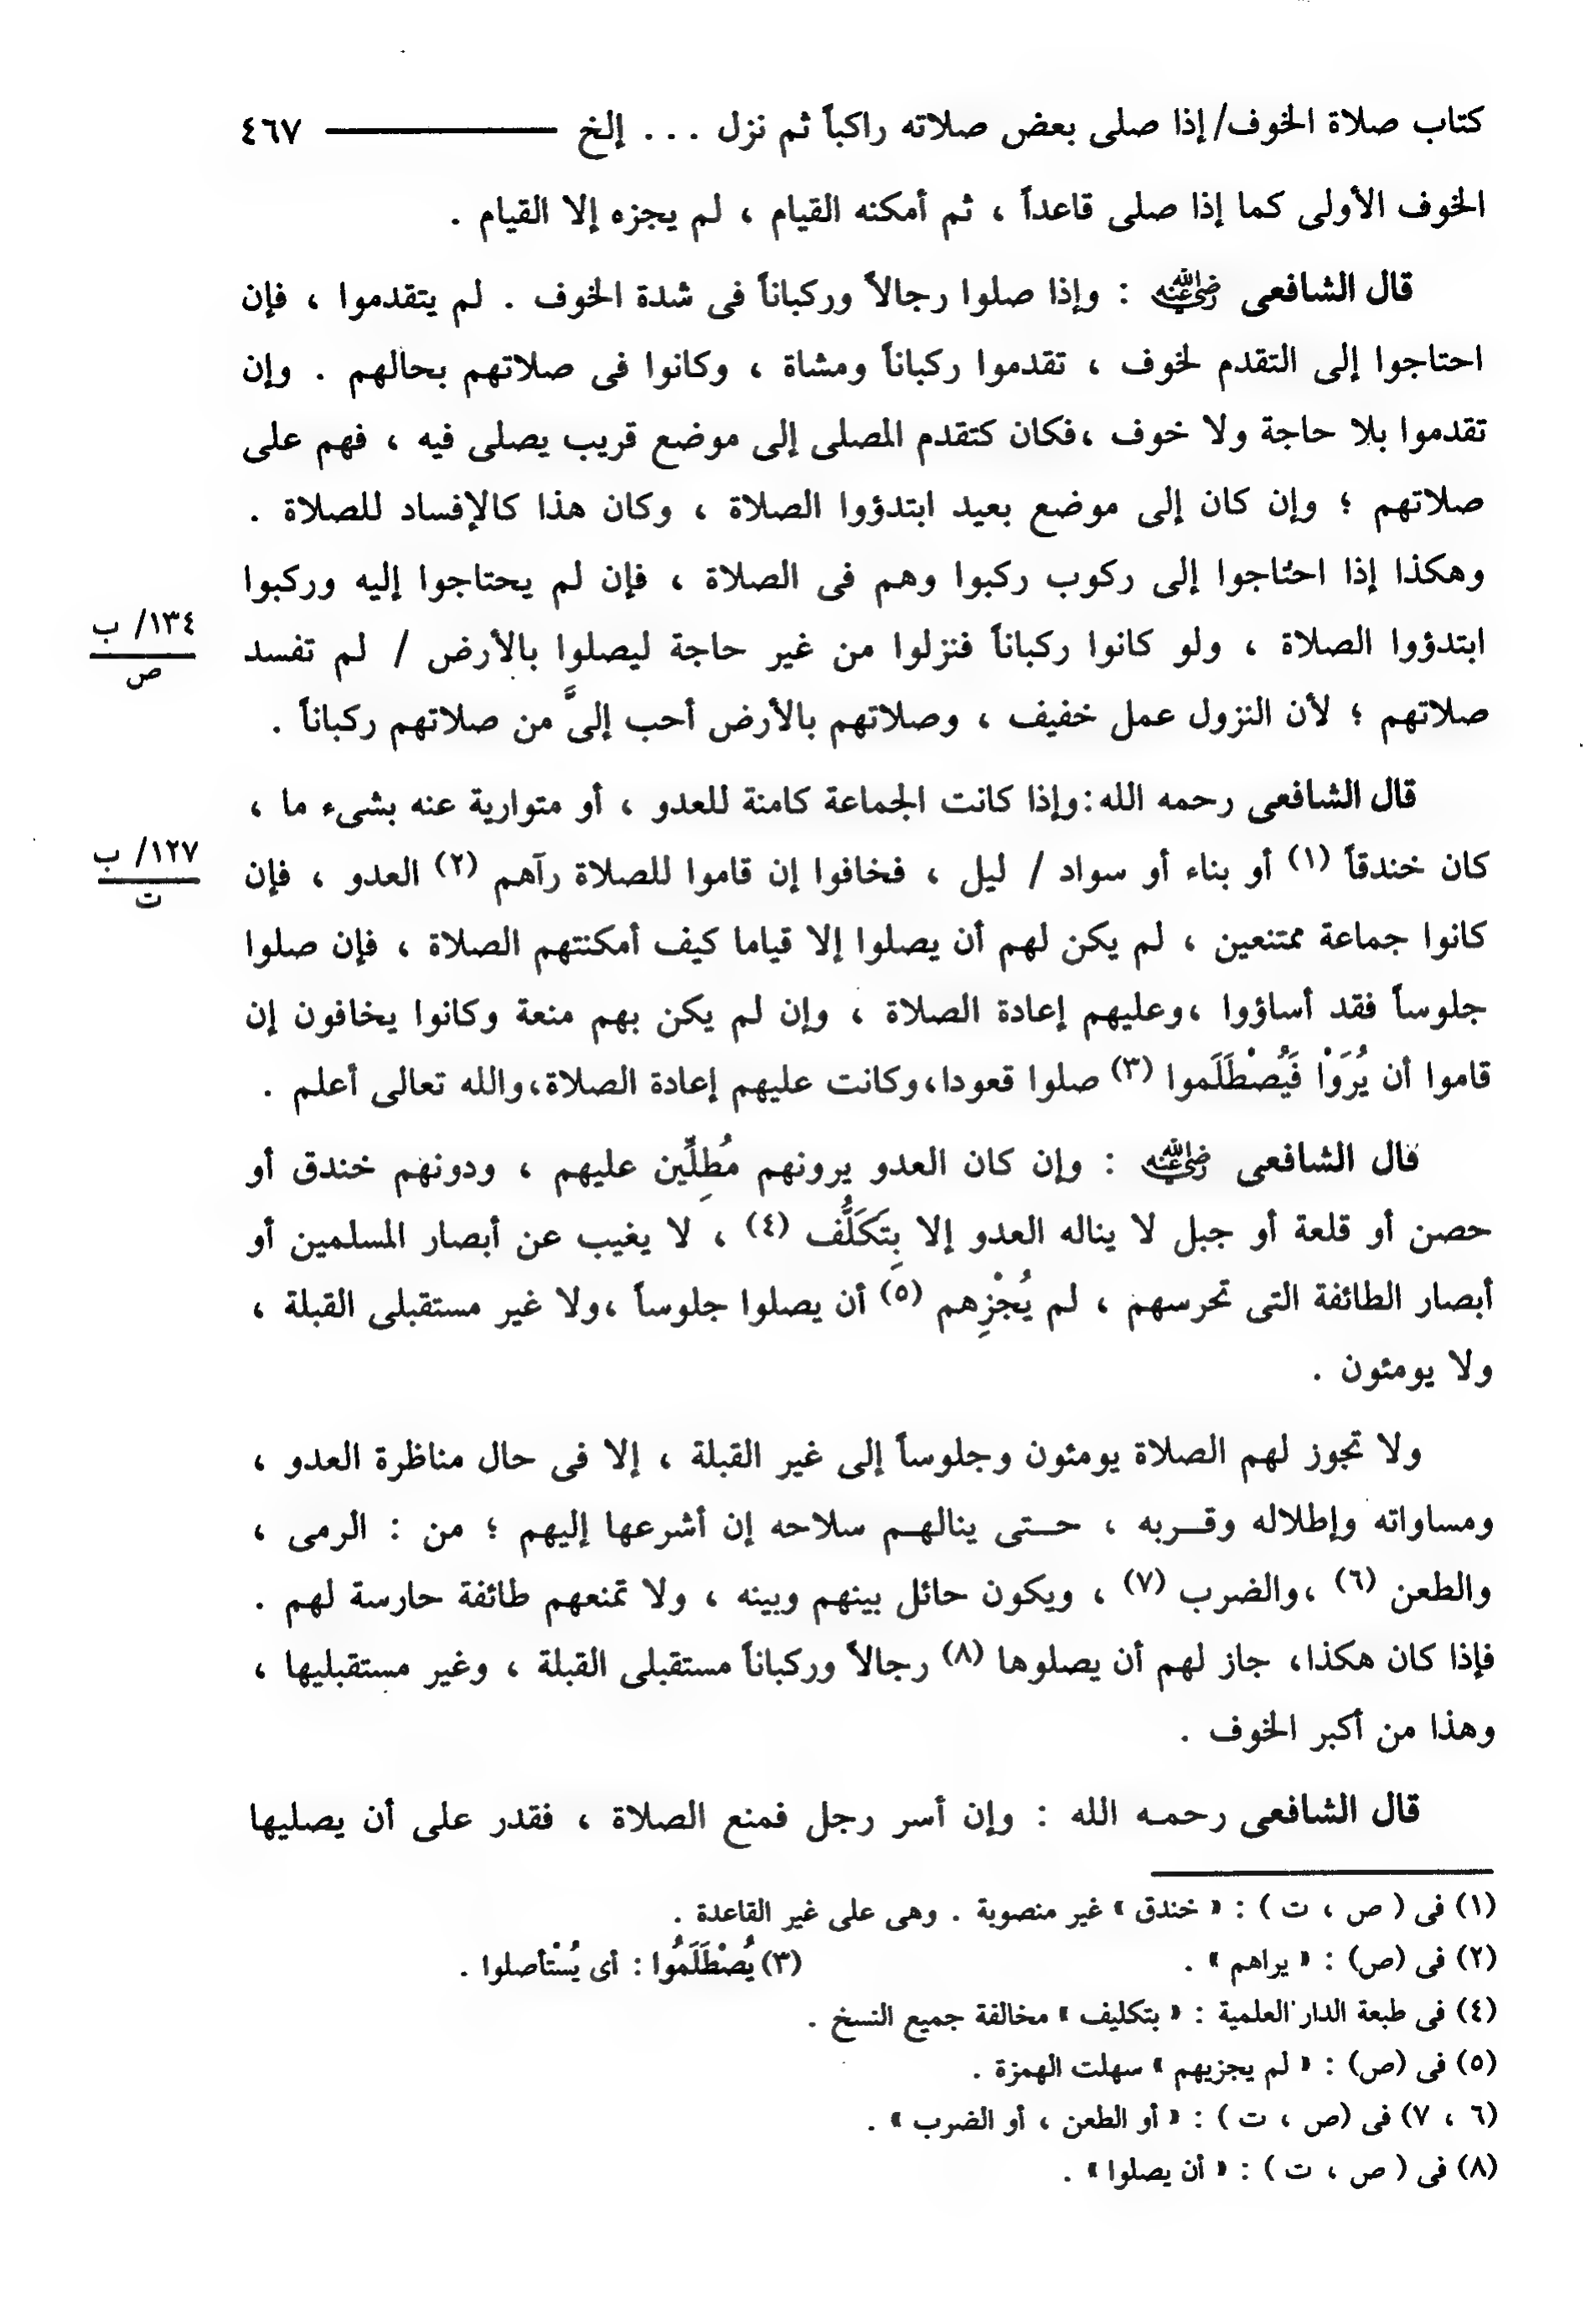 كتاب صلاة الخوف/ إذا صلى بعض صلاته راكباً ثم نزل ... إلخ ٤٦٧
الخوف الأولى كما إذا صلى قاعداً ، ثم أمكنه القيام ، لم يجزه إلا القيام .
قال الشافعى رضي الله عنه : وإذا صلوا رجالاً وركباناً فى شدة الخوف . لم يتقدموا ، فإن
احتاجوا إلى التقدم لخوف ، تقدموا ركباناً ومشاة ، وكانوا فى صلاتهم بحالهم . وإن
تقدموا بلا حاجة ولا خوف ،فكان كتقدم المصلى إلى موضع قريب يصلى فيه ، فهم على
صلاتهم ؛ وإن كان إلى موضع بعيد ابتدؤوا الصلاة ، وكان هذا كالإفساد للصلاة .
وهكذا إذا احتاجوا إلى ركوب ركبوا وهم فى الصلاة ، فإن لم يحتاجوا إليه وركبوا
ابتدؤوا الصلاة ، ولو كانوا ركباناً فنزلوا من غير حاجة ليصلوا بالأرض / لم تفسد
١٣٤/ ب
ص
صلاتهم ؛ لأن النزول عمل خفيف ، وصلاتهم بالأرض أحب إلىَّ من صلاتهم ركباناً .
قال الشافعى رحمه الله:وإذا كانت الجماعة كامنة للعدو ، أو متوارية عنه بشىء ما ،
كان خندقاً (١) أو بناء أو سواد / ليل ، فخافوا إن قاموا للصلاة رآهم (٢) العدو ، فإن
١٢٧/ ب
ت
كانوا جماعة ممتنعين ، لم يكن لهم أن يصلوا إلا قياما كيف أمكنتهم الصلاة ، فإن صلوا
جلوساً فقد أساؤوا ،وعليهم إعادة الصلاة ، وإن لم يكن بهم منعة وكانوا يخافون إن
قاموا أن يُرَوْا فَيُصْطَلَموا (٣) صلوا قعودا،وكانت عليهم إعادة الصلاة،والله تعالى أعلم .
قال الشافعى رضي الله عنه : وإن كان العدو يرونهم مُطِلِّين عليهم ، ودونهم خندق أو
حصن أو قلعة أو جبل لا يناله العدو إلا بِتَكَلُّف (٤) ، لا يغيب عن أبصار المسلمين أو
أبصار الطائفة التى تحرسهم ، لم يُجْزِهم (٥) أن يصلوا جلوساً ،ولا غير مستقبلى القبلة ،
ولا يومئون .
ولا تجوز لهم الصلاة يومئون وجلوساً إلى غير القبلة ، إلا فى حال مناظرة العدو ،
ومساواته وإطلاله وقـربه ، حـتى ينالهـم سلاحه إن أشرعها إليهم ؛ من : الرمى ،
والطعن (٦) ،والضرب (٧) ، ويكون حائل بينهم وبينه ، ولا تمنعهم طائفة حارسة لهم .
فإذا كان هكذا، جاز لهم أن يصلوها (٨) رجالاً وركباناً مستقبلى القبلة ، وغير مستقبليها ،
وهذا من أكبر الخوف .
قال الشافعى رحمـه الله : وإن أسر رجل فمنع الصلاة ، فقدر على أن يصليها
(١) فى ( ص ، ت ) : « خندق » غير منصوبة . وهى على غير القاعدة .
(٢) فى (ص) : « يراهم » . (٣) يُصْطَلَمُوا : أى يُسْتأصلوا .
(٤) فى طبعة الدار العلمية : « بتكليف » مخالفة جميع النسخ .
(٥) فى (ص) : « لم يجزيهم » سهلت الهمزة .
(٦ ، ٧) فى (ص ، ت ) : « أو الطعن ، أو الضرب » .
(٨) فى ( ص ، ت ) : « أن يصلوا » .